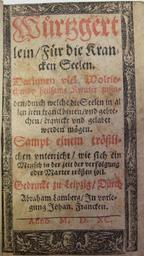 Würtzgert
lein/Für die Kran
cken Seelen.
Darinnen viel Wolrie
chende heilsame Kreuter zufin
den/durch welche die Seelen in al
len iren kranckheiten/und gebre
chen/ erquickt und gelabet
werden mögen.
Sampt einem tröstli
chen unterricht/ wie sich ein
Mensch in der zeit der verfolgung
oder Marter trösten sol.
Gedruckt zu Leipzig/ Durch
Abraham Lamberg/ In vorle
gung Johan. Francken.
Anno M. D. XC.